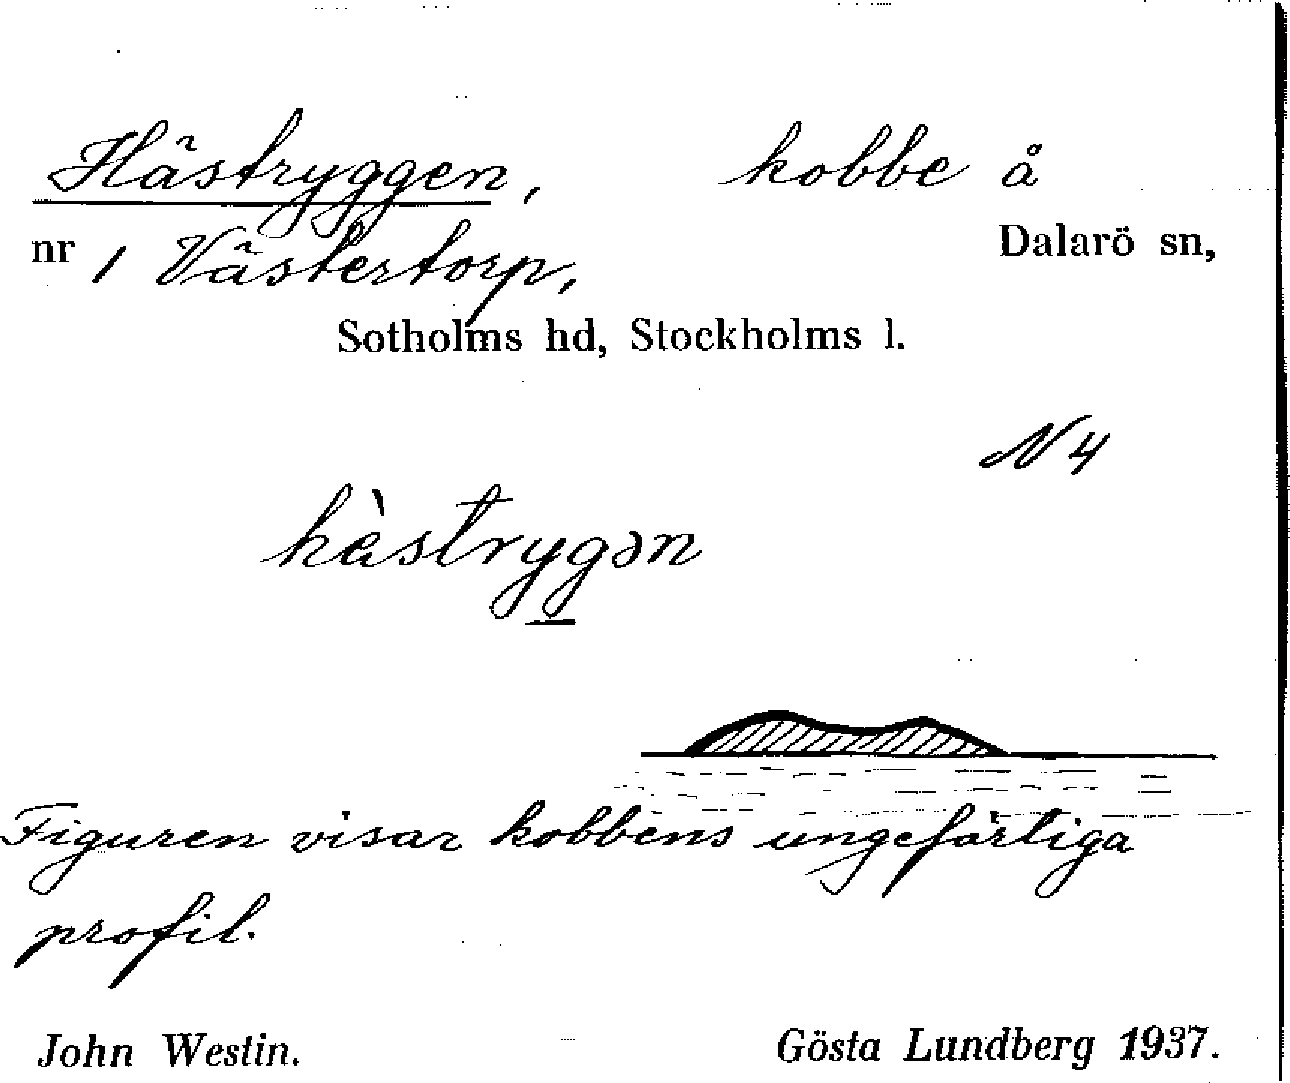 Hästryggen, kobbe å
nr 1 Västertorp, Dalarö sn,
Sotholms hd, Stockholms l.
N 4
hàstrygən
Figuren visar kobbens ungefärliga
profil.
John Westin. Gösta Lundberg 1937.